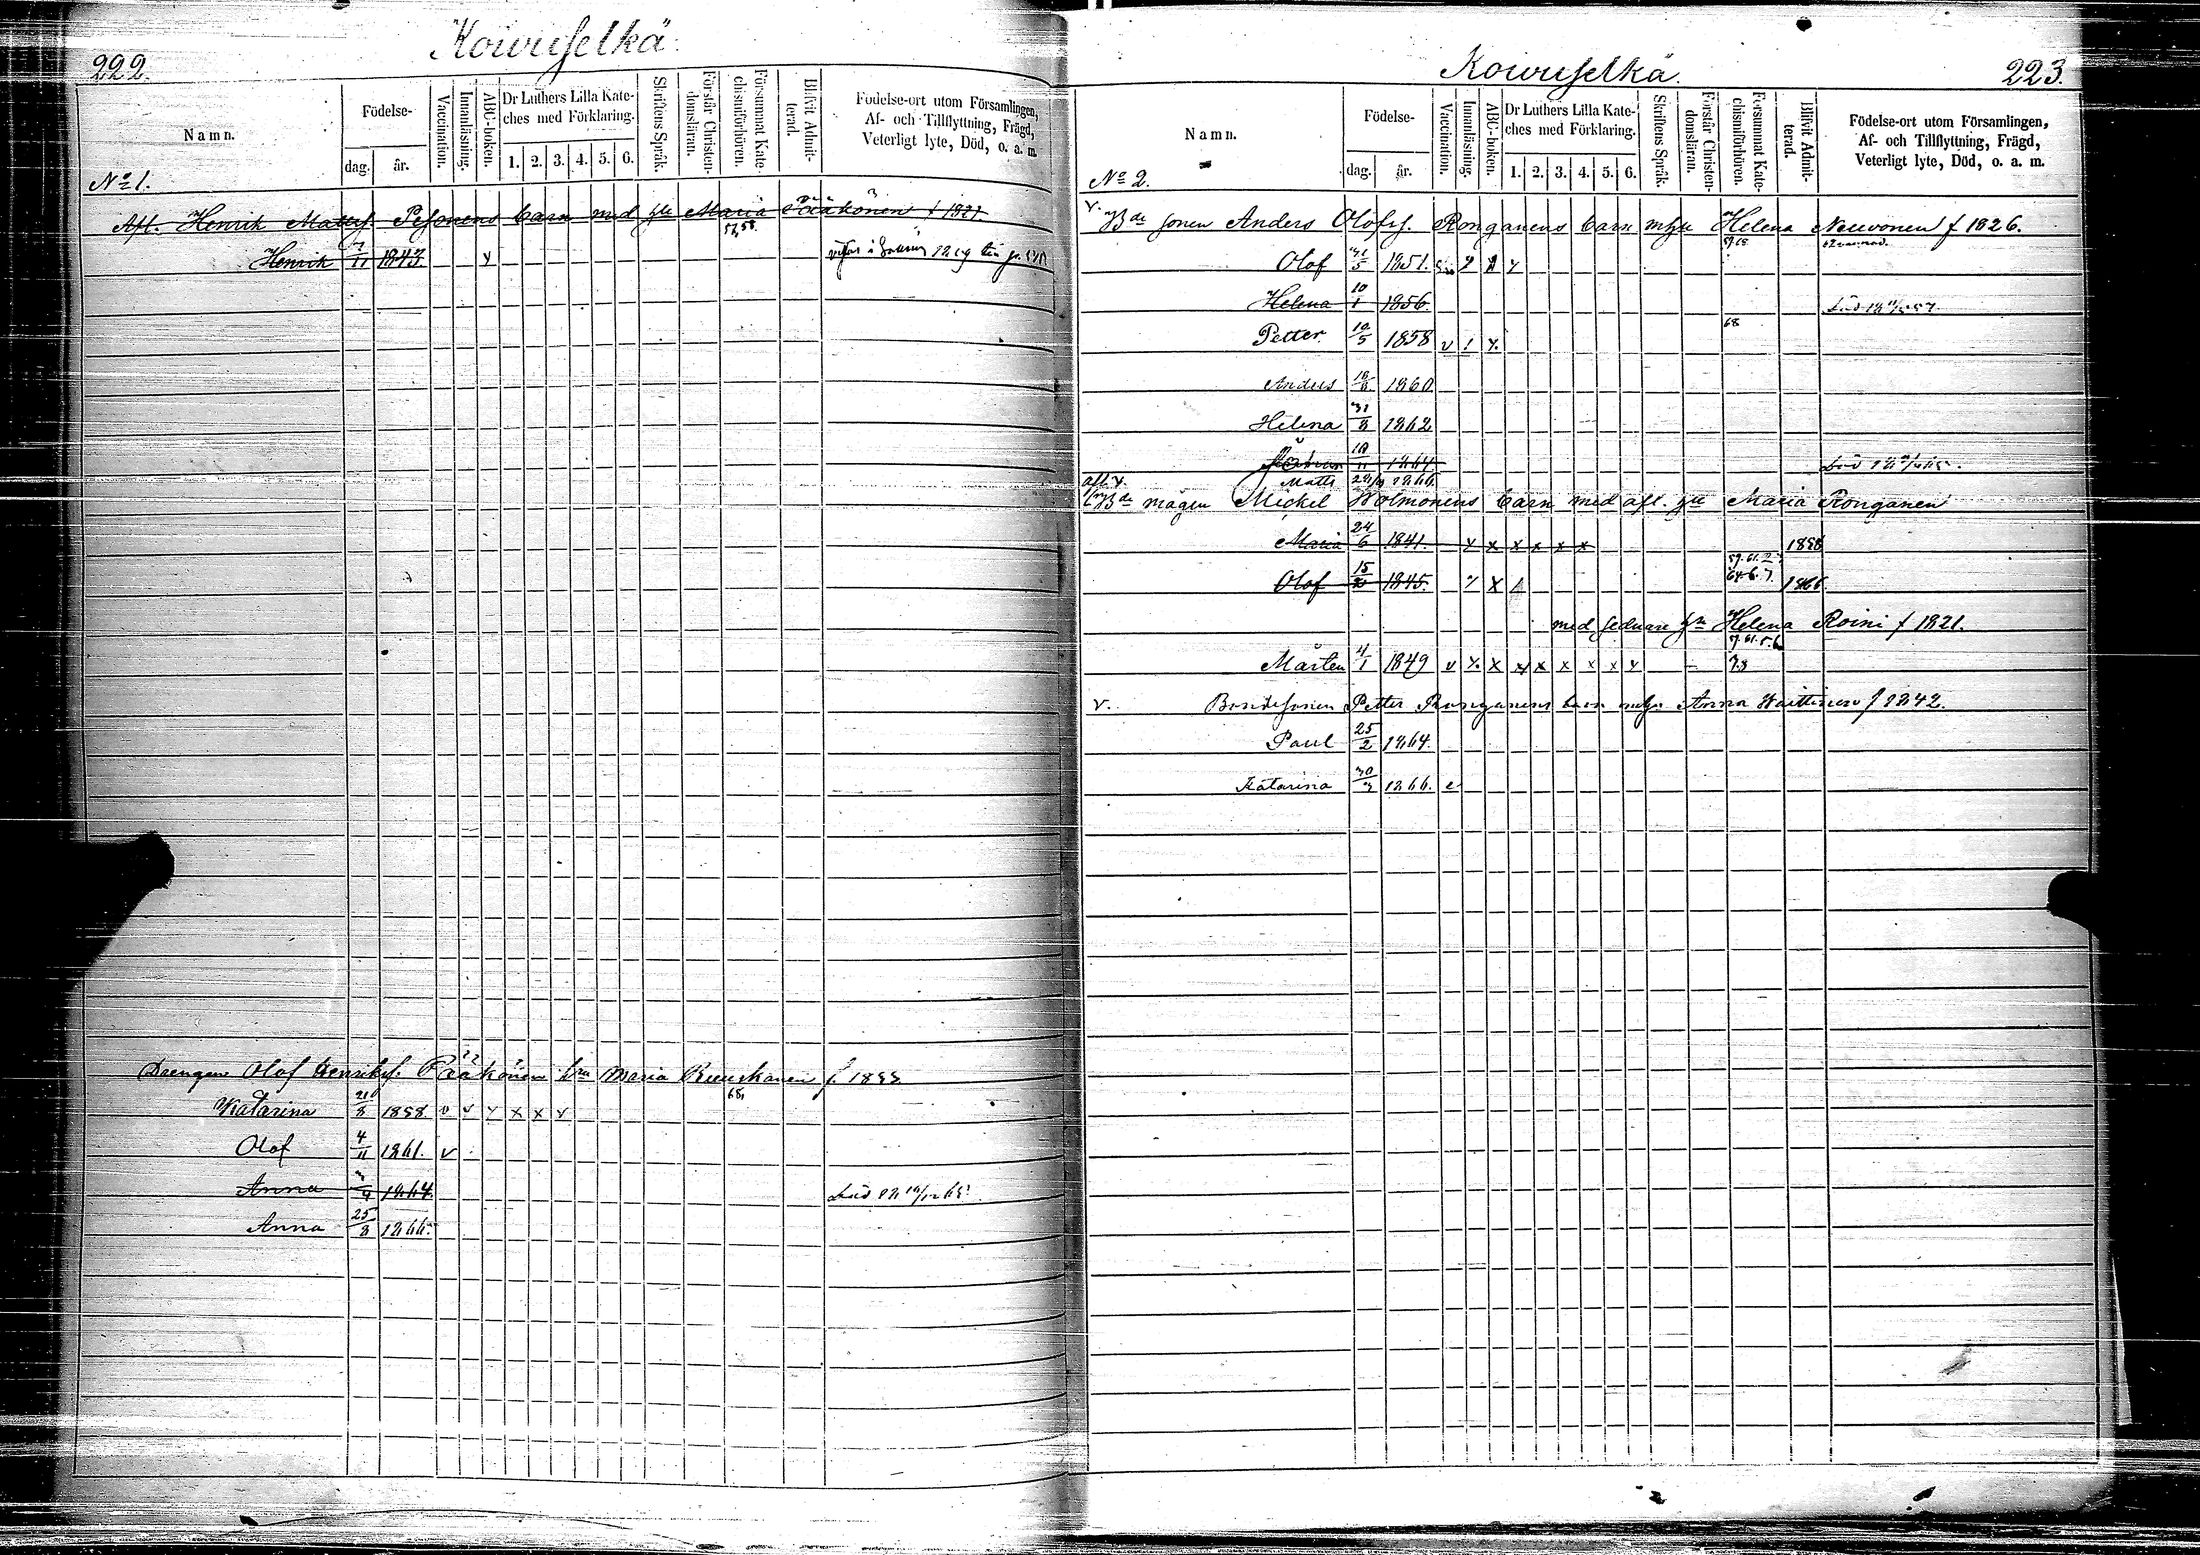 222.
Koiwuselkä
Namn.
Födelse-
dag.
år.
Vaccination.
Innanläsning.
ABC-boken.
Dr Luthers Lilla Kate-
ches med Förklaring.
1. 2. 3. 4. 5. 6.
Skriftens Språk.
Förstår Christen-
domsläran.
Försummat Kate-
chismiförhören.
Blifvit Admit-
terad.
Födelse-ort utom Församlingen,
Af- och Tillflyttning, Frägd,
Veterligt lyte, Död, o. a. m.
No 1.
Afl. Henrik Mattsf. Pesonens barn med hu Maria Pääkönen f 1821
Henrik 1843.
Drengen Olof Henriksf. Pääkönen hu Maria Ruuskanen f.
Katarina 1858 v v x x x x
Olof 4/11 1861. v
Anna 1864
Anna 25/8 1866.
223.
Koiwuselkä.
Namn.
Födelse-
dag.
år.
Vaccination.
Innanläsning.
ABC-boken.
Dr Luthers Lilla Kate-
ches med Förklaring.
1. 2. 3. 4. 5. 6.
Skriftens Språk.
Förstår Christen-
domsläran.
Försummat Kate-
chismiförhören.
Blifvit Admit-
terad.
Födelse-ort utom Församlingen,
Af- och Tillflyttning, Frägd,
Veterligt lyte, Död, o. a. m.
No 2.
v. Bde sonen Anders Olofsf. Ronganens barn m hu Helena Neuvonen f 1826.
Olof 31/5 1851.
Helena 10/1 1856.
68
Petter 10/5 1858
Anders 1860
Helena 31/8 1862
10/11 1864
Matts 1866.
Bde mågen Mickel Holmonens barn med afl. hu Maria Ronganen
Maria 24/6 1841. x x x x x x 1858
Olof 15/10 1845. 1866.
med sednare hu Helena Roini f 1821.
Mårten 4/1 1849 v x x x x x x x x
v. Bondesonen Petter Ronganens barn m hu Anna Waittinen f 1842.
Paul 25/2 1864.
Katarina 30/3 1866. v